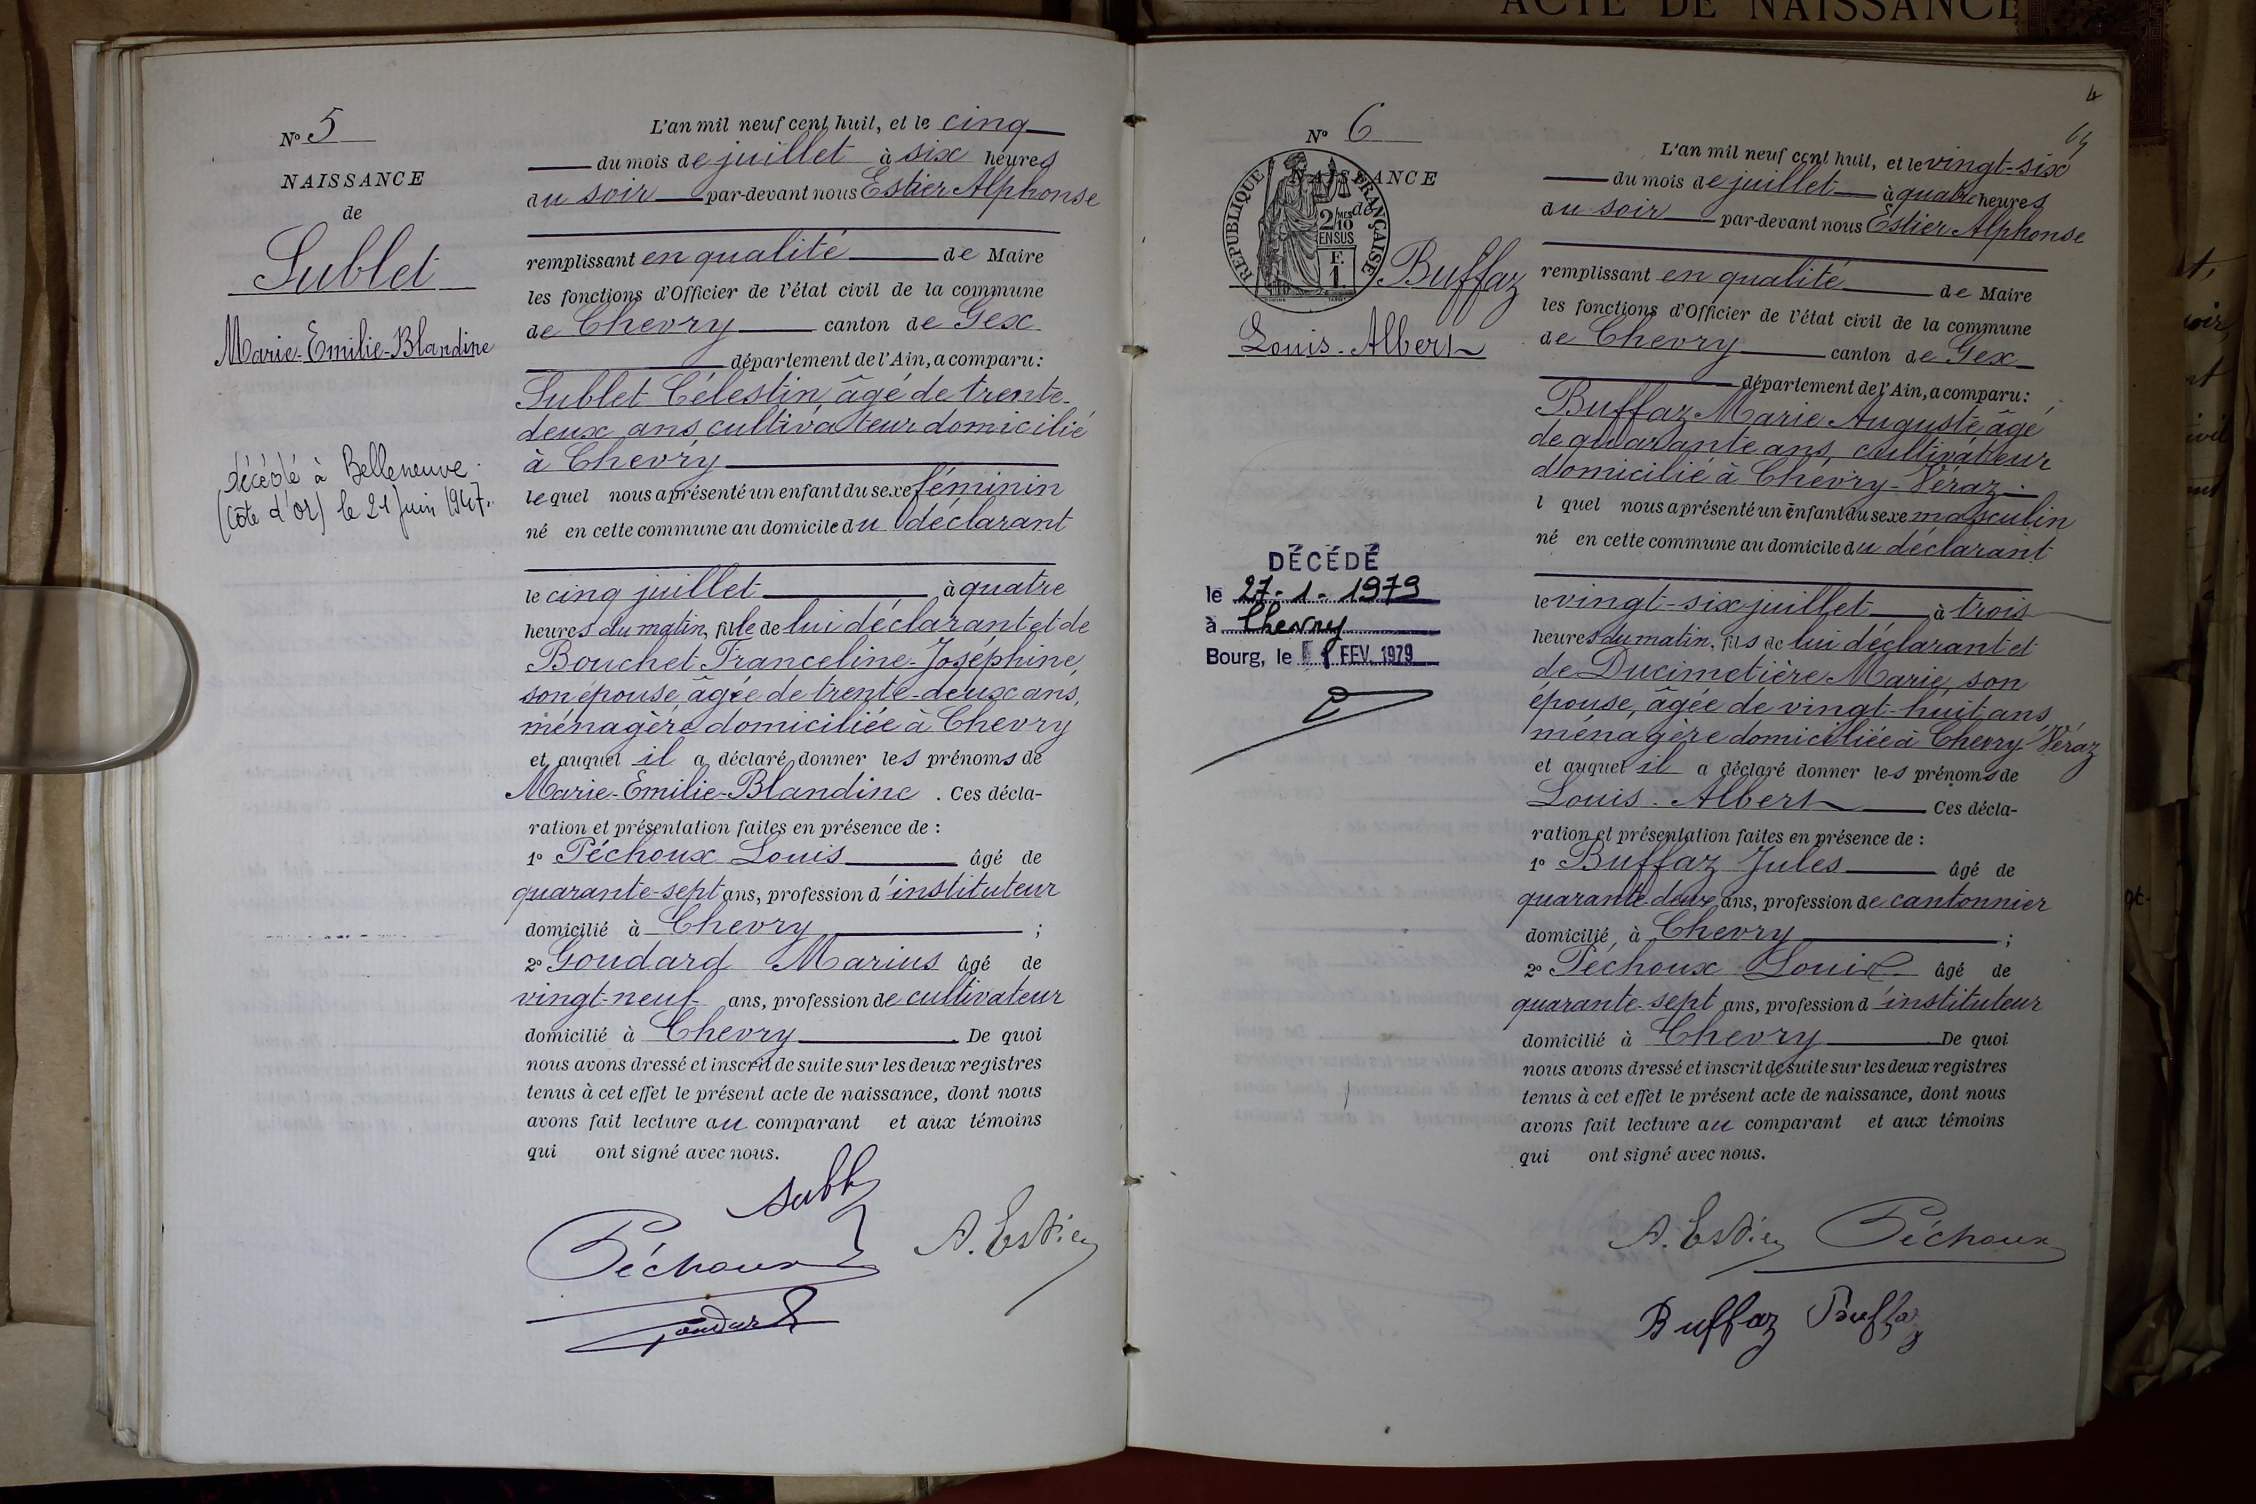 ACTE DE NAISSANCE
N° 5
NAISSANCE
de
Sublet
Marie-Emilie-Blandine
décédé à Belleneuve
(Côte d'or) le 21 Juin 1947.
L'an mil neuf cent huit, et le cinq
du mois de juillet à six heures
du soir par-devant nous Estier Alphonse
remplissant en qualité de Maire
les fonctions d'Officier de l'état civil de la commune
de Chevry canton de Gex
département de l'Ain, a comparu :
Sublet Célestin, âgé de trente-
deux ans, cultivateur domicilié
à Chevry
lequel nous a présenté un enfant du sexe féminin
né en cette commune au domicile du déclarant
le cinq juillet à quatre
heures du matin, fille de lui déclarant et de
Bouchet Franceline-Joséphine,
son épouse, âgée de trente-deux ans,
ménagère domiciliée à Chevry
et auquel il a déclaré donner les prénoms de
Marie-Emilie-Blandine . Ces décla-
ration et présentation faites en présence de :
1° Péchoux Louis âgé de
quarante-sept ans, profession d'instituteur
domicilié à Chevry ;
2° Goudard Marius âgé de
vingt-neuf ans, profession de cultivateur
domicilié à Chevry De quoi
nous avons dressé et inscrit de suite sur les deux registres
tenus à cet effet le présent acte de naissance, dont nous
avons fait lecture au comparant et aux témoins
qui ont signé avec nous.
Péchoux
A. Estier
Goudard
4
N° 6
NAISSANCE
de
RÉPUBLIQUE FRANÇAISE
2/10
EN SUS
F.
1.
Buffaz
Louis-Albert
DÉCÉDÉ
le 27-1-1979
à Chevry
Bourg, le FEV. 1979
L'an mil neuf cent huit, et le vingt-six
du mois de juillet à quatre heures
du soir par-devant nous Estier Alphonse
remplissant en qualité de Maire
les fonctions d'Officier de l'état civil de la commune
de Chevry canton de Gex
département de l'Ain, a comparu :
Buffaz Marie Auguste, âgé
de quarante ans, cultivateur
domicilié à Chevry-Véraz
l quel nous a présenté un enfant du sexe masculin
né en cette commune au domicile du déclarant
le vingt-six juillet à trois
heures du matin, fils de lui déclarant et
de Ducimetière Marie, son
épouse, âgée de vingt-huit ans,
ménagère domiciliée à Chevry-Véraz
et auquel il a déclaré donner les prénoms de
Louis-Albert Ces décla-
ration et présentation faites en présence de :
1° Buffaz Jules âgé de
quarante-deux ans, profession de cantonnier
domicilié à Chevry ;
2° Péchoux Louis âgé de
quarante-sept ans, profession d'instituteur
domicilié à Chevry De quoi
nous avons dressé et inscrit de suite sur les deux registres
tenus à cet effet le présent acte de naissance, dont nous
avons fait lecture au comparant et aux témoins
qui ont signé avec nous.
A. Estier Péchoux
Buffaz Buffaz